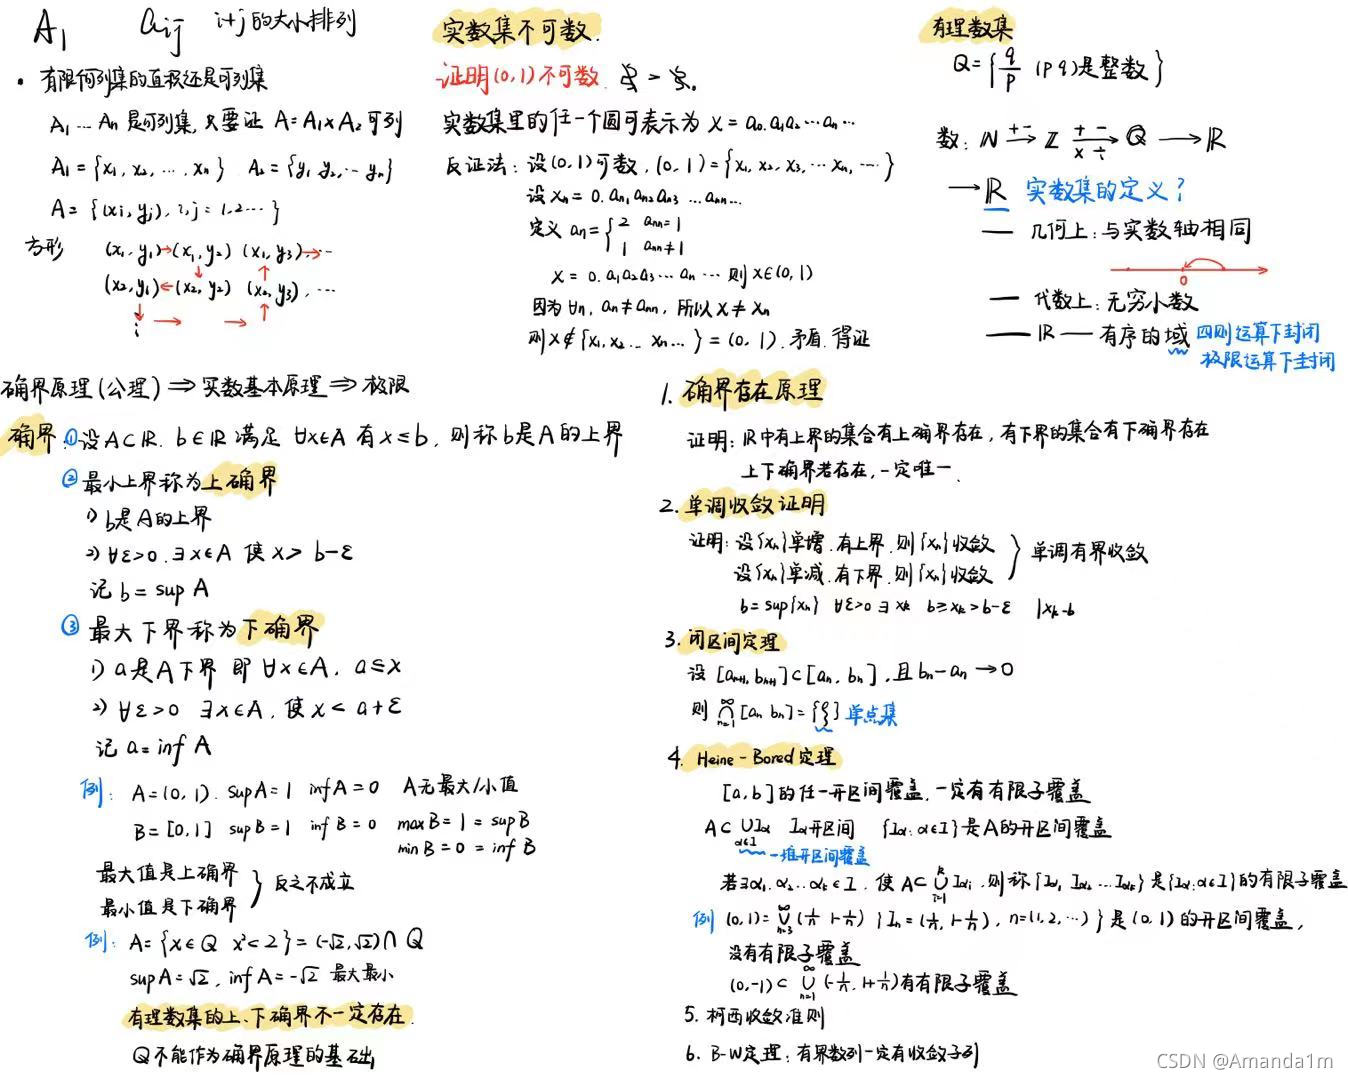 A₁ aij i+j的大小排列
· 有限个可列集的直积还是可列集
A₁…An 是可列集,只要证 A=A₁×A₂ 可列
A₁={x₁,x₂,…,xn} A₂={y₁,y₂,…yn}
A={(xi,yj),i,j=1,2…}
方形 (x₁,y₁)→(x₁,y₂) (x₁,y₃)→…
(x₂,y₁)←(x₂,y₂) (x₂,y₃),…
⋮ → →
实数集不可数.
证明(0,1)不可数.
实数集里的任一个圆可表示为 x=a₀.a₁a₂…an…
反证法:设(0,1)可数,(0,1)={x₁,x₂,x₃,…xn,…}
设 xn=0.an₁an₂an₃…ann…
定义 an={2 ann=1
1 ann≠1
x=0.a₁a₂a₃…an… 则 x∈(0,1)
因为∀n,an≠ann,所以 x≠xn
则x∉{x₁,x₂…xn…}=(0,1).矛盾.得证
有理数集
Q={q/p (p q)是整数}
数:N +-→ Z + - × ÷→ Q → R
→R 实数集的定义?
— 几何上:与实数轴相同
0
— 代数上:无穷小数
— R — 有序的域 四则运算下封闭
极限运算下封闭
确界原理(公理)⇒实数基本原理⇒极限
确界:①设A⊂R.b∈R 满足 ∀x∈A 有x≤b,则称b是A的上界
②最小上界称为上确界
1) b是A的上界
2) ∀ε>0.∃x∈A 使 x>b-ε
记 b=sup A
③最大下界称为下确界
1) a是A下界 即 ∀x∈A,a≤x
2) ∀ε>0 ∃x∈A,使 x<a+ε
记 a=inf A
例: A=(0,1).supA=1 infA=0 A无最大/小值
B=[0,1] supB=1 inf B=0 maxB=1=supB
min B=0=inf B
最大值是上确界
最小值是下确界 } 反之不成立
例: A={x∈Q x²<2}=(-√2,√2)∩Q
supA=√2,inf A=-√2 最大最小
有理数集的上、下确界不一定存在.
Q不能作为确界原理的基础,
1. 确界存在原理
证明:R中有上界的集合有上确界存在,有下界的集合有下确界存在
上下确界若存在,一定唯一.
2. 单调收敛证明
证明:设{xn}单增.有上界.则{xn}收敛
设{xn}单减.有下界.则{xn}收敛 } 单调有界收敛
b=sup{xn} ∀ε>0 ∃xk b≥xk>b-ε |xk-b
3. 闭区间定理
设 [an+1,bn+1]⊂[an,bn],且bn-an→0
则 ∞∩n=1[an bn]={ξ} 单点集
4. Heine-Bored定理
[a,b]的任一开区间覆盖,一定有有限子覆盖
A⊂∪α∈I Iα Iα开区间 {Iα:α∈I}是A的开区间覆盖
一堆开区间覆盖
若∃α₁,α₂…αk∈I,使 A⊂k∪i=1 Iαi,则称{Iα₁ Iα₂…Iαk}是{Iα:α∈I}的有限子覆盖
例 (0,1)=∞∪n=3(1/n,1-1/n) {In=(1/n,1-1/n),n=(1,2,…)}是(0,1)的开区间覆盖,
没有有限子覆盖
(0,-1)⊂∞∪n=1(-1/n,1+1/n)有有限子覆盖
5. 柯西收敛准则
6. B-W定理:有界数列一定有收敛子列
CSDN @Amanda1m